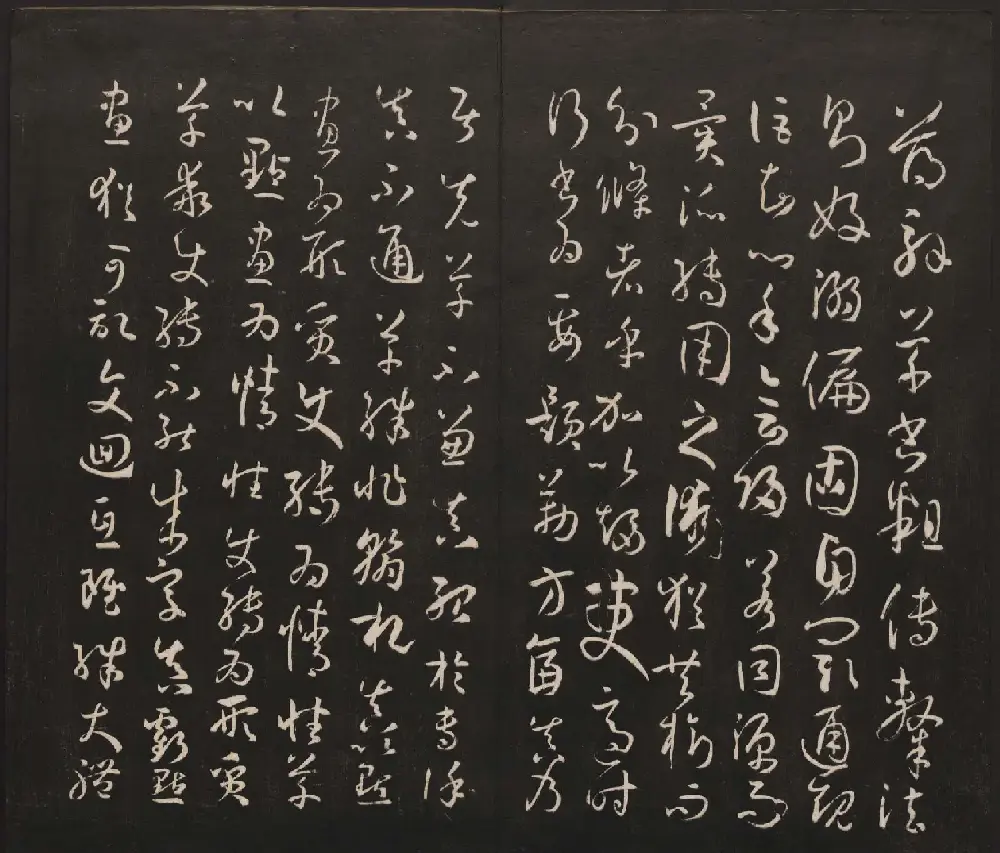 薄解草書粗傳隸法
則好溺偏固自閡通規
詎知心手會歸若同源而
異派轉用之術猶共樹而
分條者乎加以趨變適時
行書為要題勒方畐真乃
居先草不兼真殆於專謹
真不通草殊非翰札真以點
畫為形質使轉為情性草
以點畫為情性使轉為形質
草乖使轉不能成字真虧點
畫猶可記文迴互雖殊大體